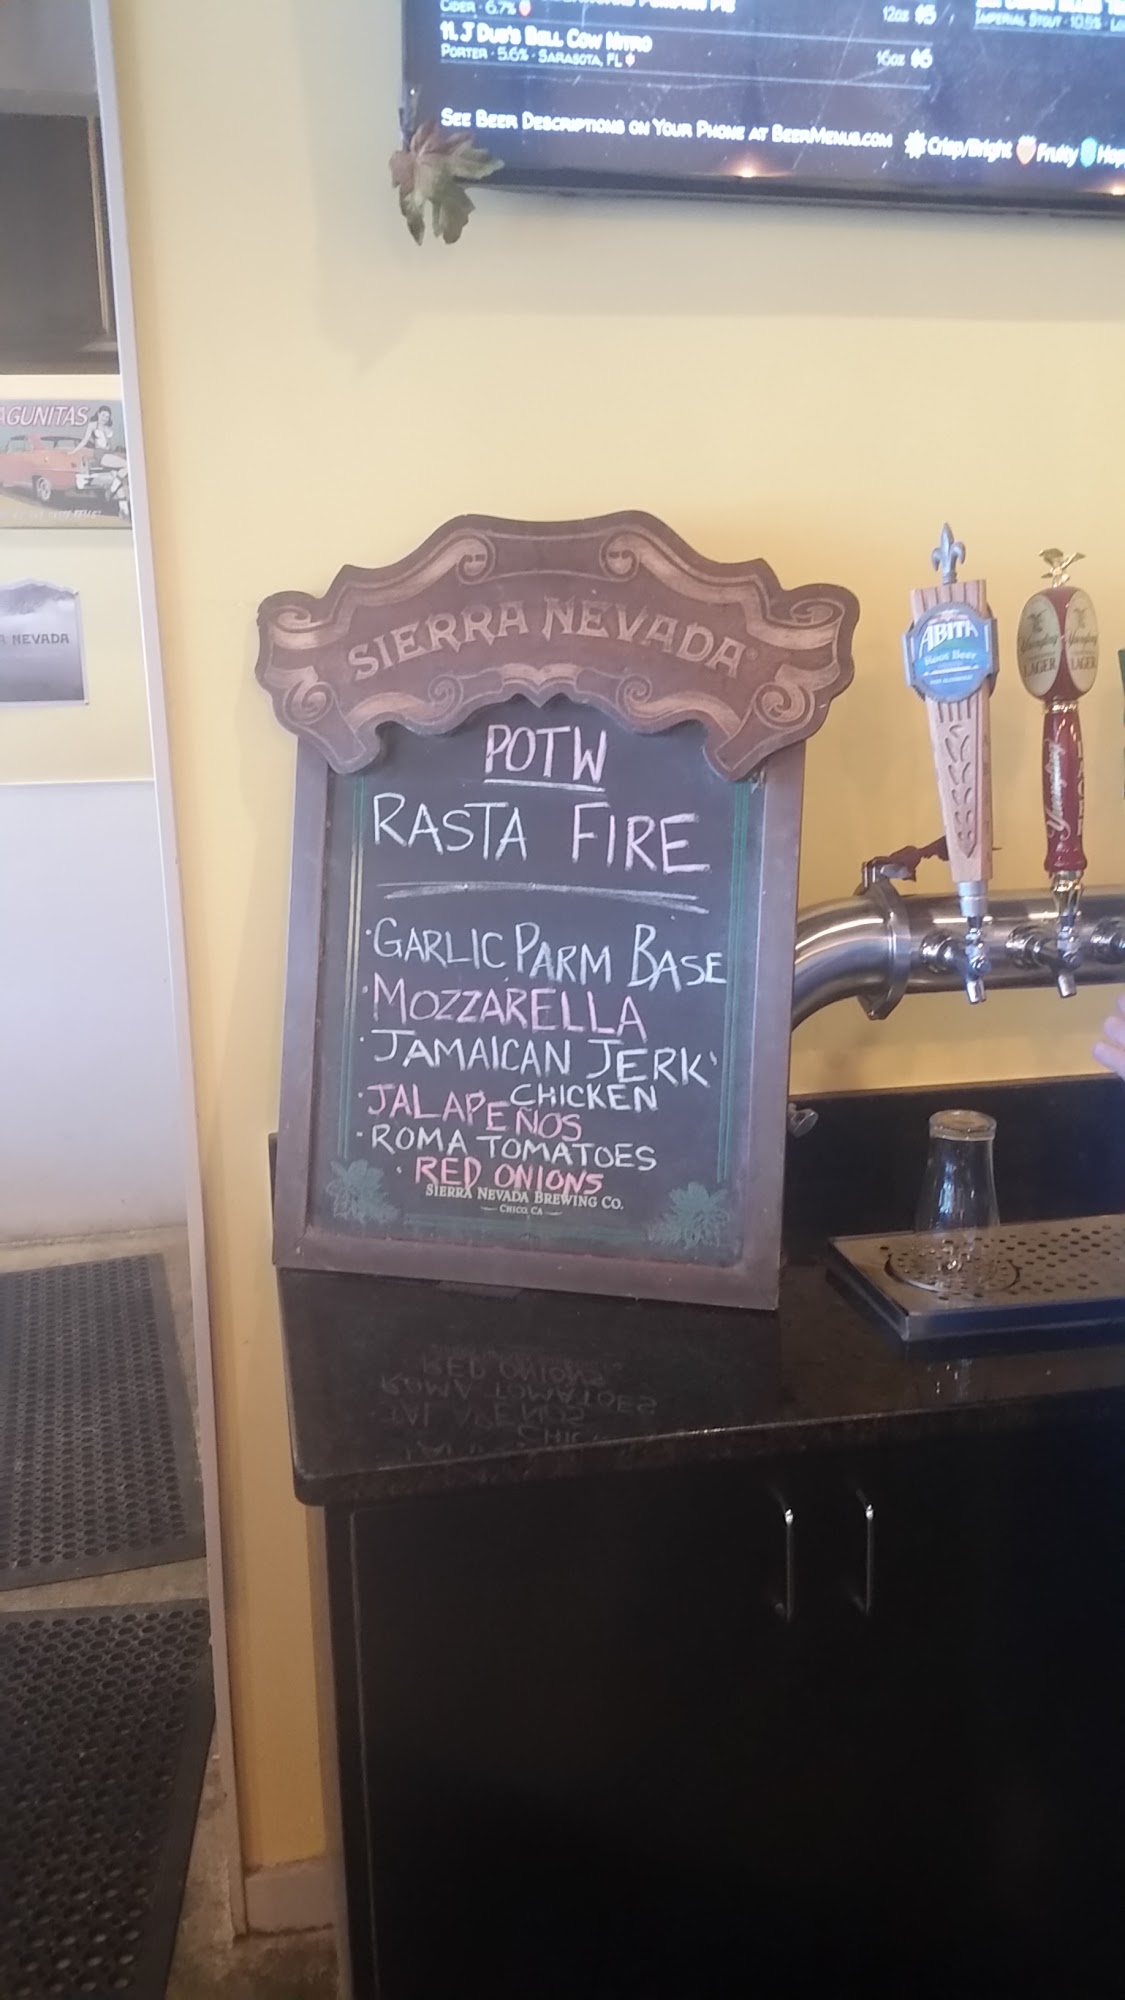 CIDER · 6.7%
12oz $5
11. J DUB'S BELL COW NITRO
PORTER · 5.6% · SARASOTA, FL
16oz $6
IMPERIAL STOUT · 10.5%
SEE BEER DESCRIPTIONS ON YOUR PHONE AT BEERMENUS.COM
Crisp/Bright Fruity
AGUNITAS
NEVADA
SIERRA NEVADA
POTW
RASTA FIRE
· GARLIC PARM BASE
· MOZZARELLA
· JAMAICAN JERK
CHICKEN
· JALAPEÑOS
· ROMA TOMATOES
· RED ONIONS
SIERRA NEVADA BREWING CO.
CHICO, CA
ABITA
Root Beer
Yuengling
LAGER
Yuengling
LAGER
Yuengling